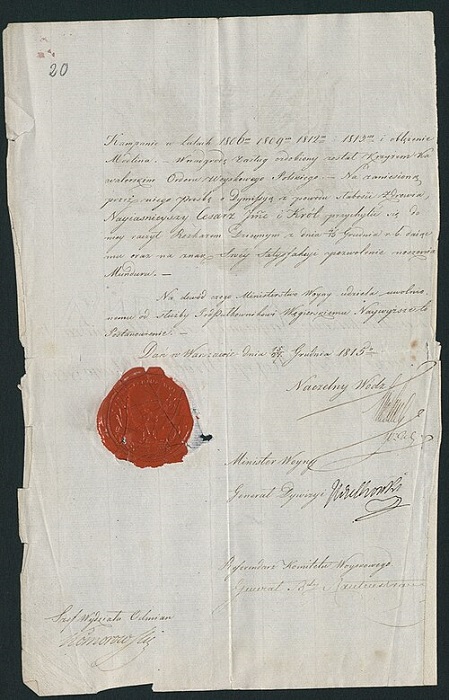 20
Kampanie w Latach 1806m 1809m 1812m i 1813m i oblężenie
Modlina. — W nagrodę zasług ozdobiony został Krzyżem Ka
walerskim Orderu Woyskowego Polskiego — Na zaniesioną
przez niego Prośbę o Dymissyą z powodu słabości Zdrowia,
Nayiaśnieyszy Cesarz Jmć i Król przychylić się do
niey raczył Rozkazem Dziennym z dnia Grudnia r. b.
mu oraz na znak Swey Satysfakcyi pozwolenie noszenia
Munduru. —
Na dowód czego Ministerstwo Woyny udziela uwolnio
nemu od Służby Podpułkownikowi Węgierskiemu Naywyższe to
Postanowienie. —
Dan w Warszawie dnia Grudnia 1815
Naczelny Wódz
Minister Woyny
Generał Dywizyi Wielhorski
Referendarz Komitetu Woyskowego
Generał
Szef Wydziału Odmian
Komorowski